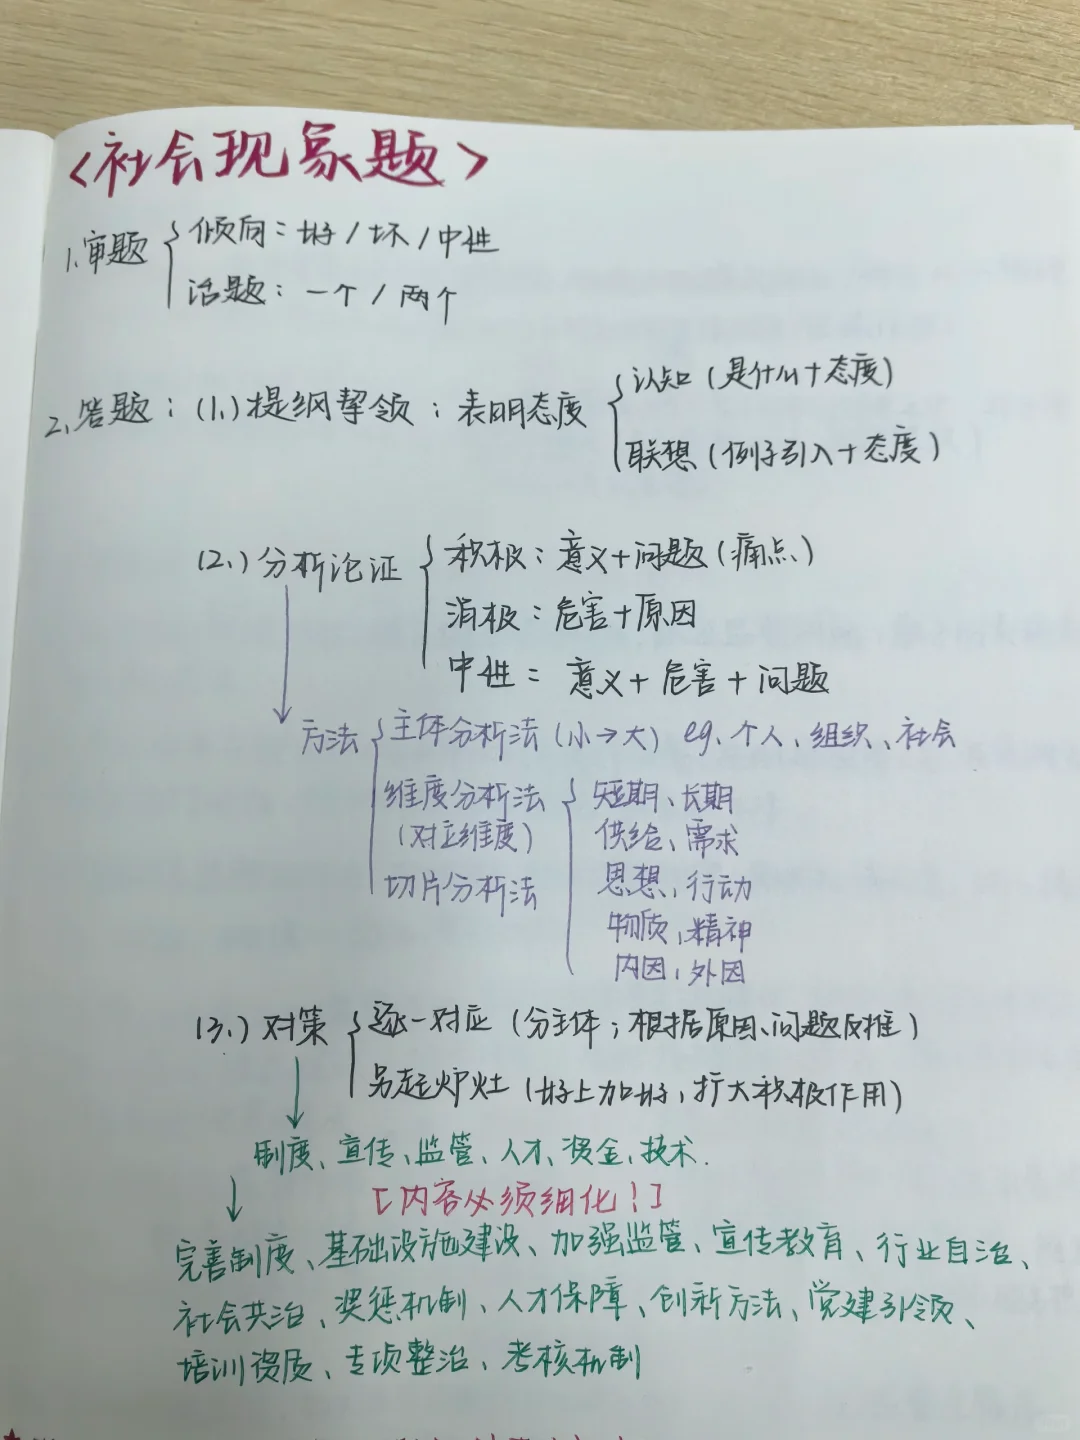 <社会现象题>
1.审题 倾向:好/坏/中性
话题:一个/两个
2.答题:(1.)提纲挈领:表明态度 认知(是什么+态度)
联想(例子引入+态度)
(2.)分析论证 积极:意义+问题(痛点)
消极:危害+原因
中性:意义+危害+问题
方法 主体分析法(小→大) eg.个人、组织、社会
维度分析法 短期、长期
(对应维度) 供给、需求
切片分析法 思想、行动
物质、精神
内因、外因
(3.)对策 逐一对应(分主体;根据原因、问题反推)
另起炉灶(好上加好,扩大积极作用)
制度、宣传、监管、人才、资金、技术.
[内容必须细化!]
完善制度、基础设施建设、加强监管、宣传教育、行业自治、
社会共治、奖惩机制、人才保障、创新方法、党建引领、
培训资质、专项整治、考核机制